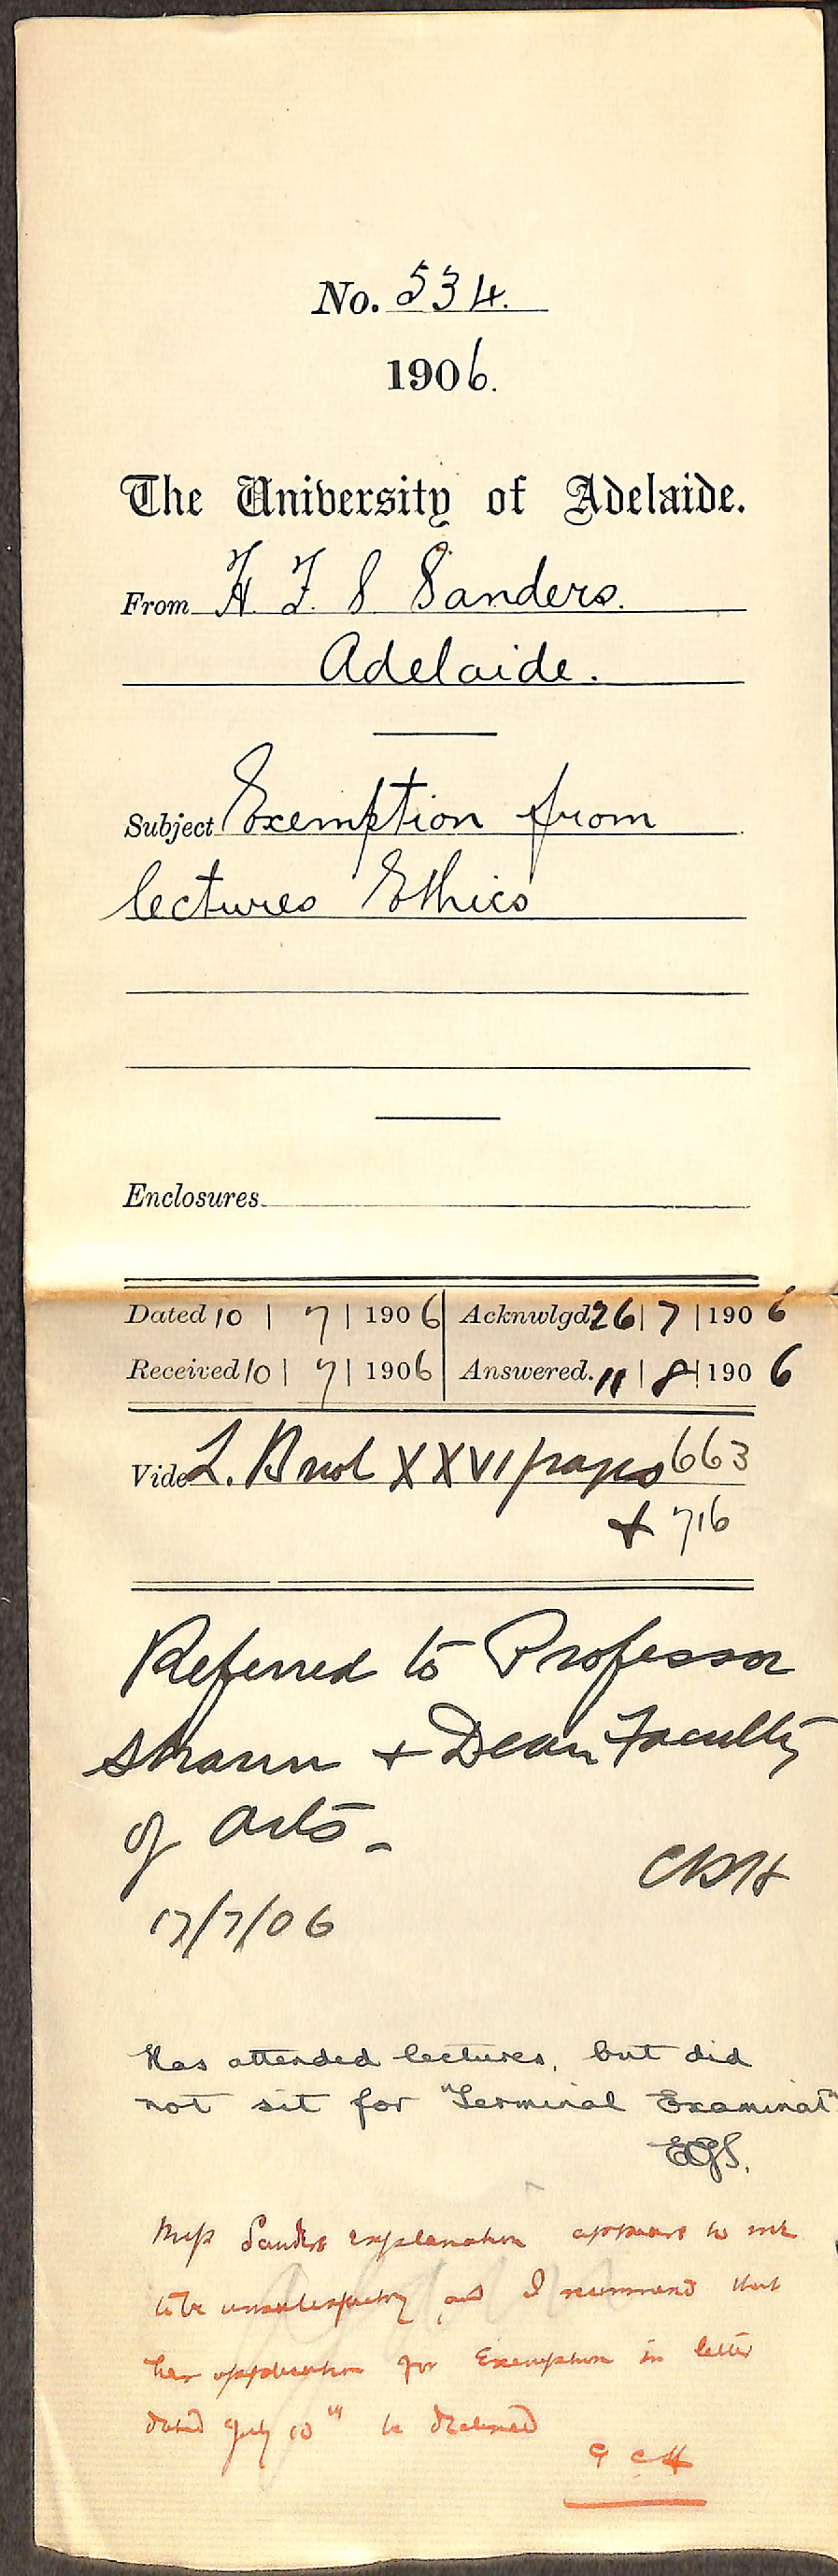 No. 534.
1906.
The University of Adelaide.
From H. F. S Sanders.
Adelaide.
Subject Exemption from
lectures Ethics
Enclosures
Dated 10 | 7 | 1906 Acknwlgd 26 | 7 | 1906
Received 10 | 7 | 1906 Answered. 11 | 8 | 1906
Vide L. Book XXVI pages 663
+ 716
Referred to Professor
+ Dean Faculty
of Arts -
CRH
17/7/06
Has attended lectures, but did
not sit for "Terminal Examinat
EGS.
Miss Sanders explanation appears to me
to be unsatisfactory and I recommend that
her application for Exemption in letter
dated July 10th be declined
G C H